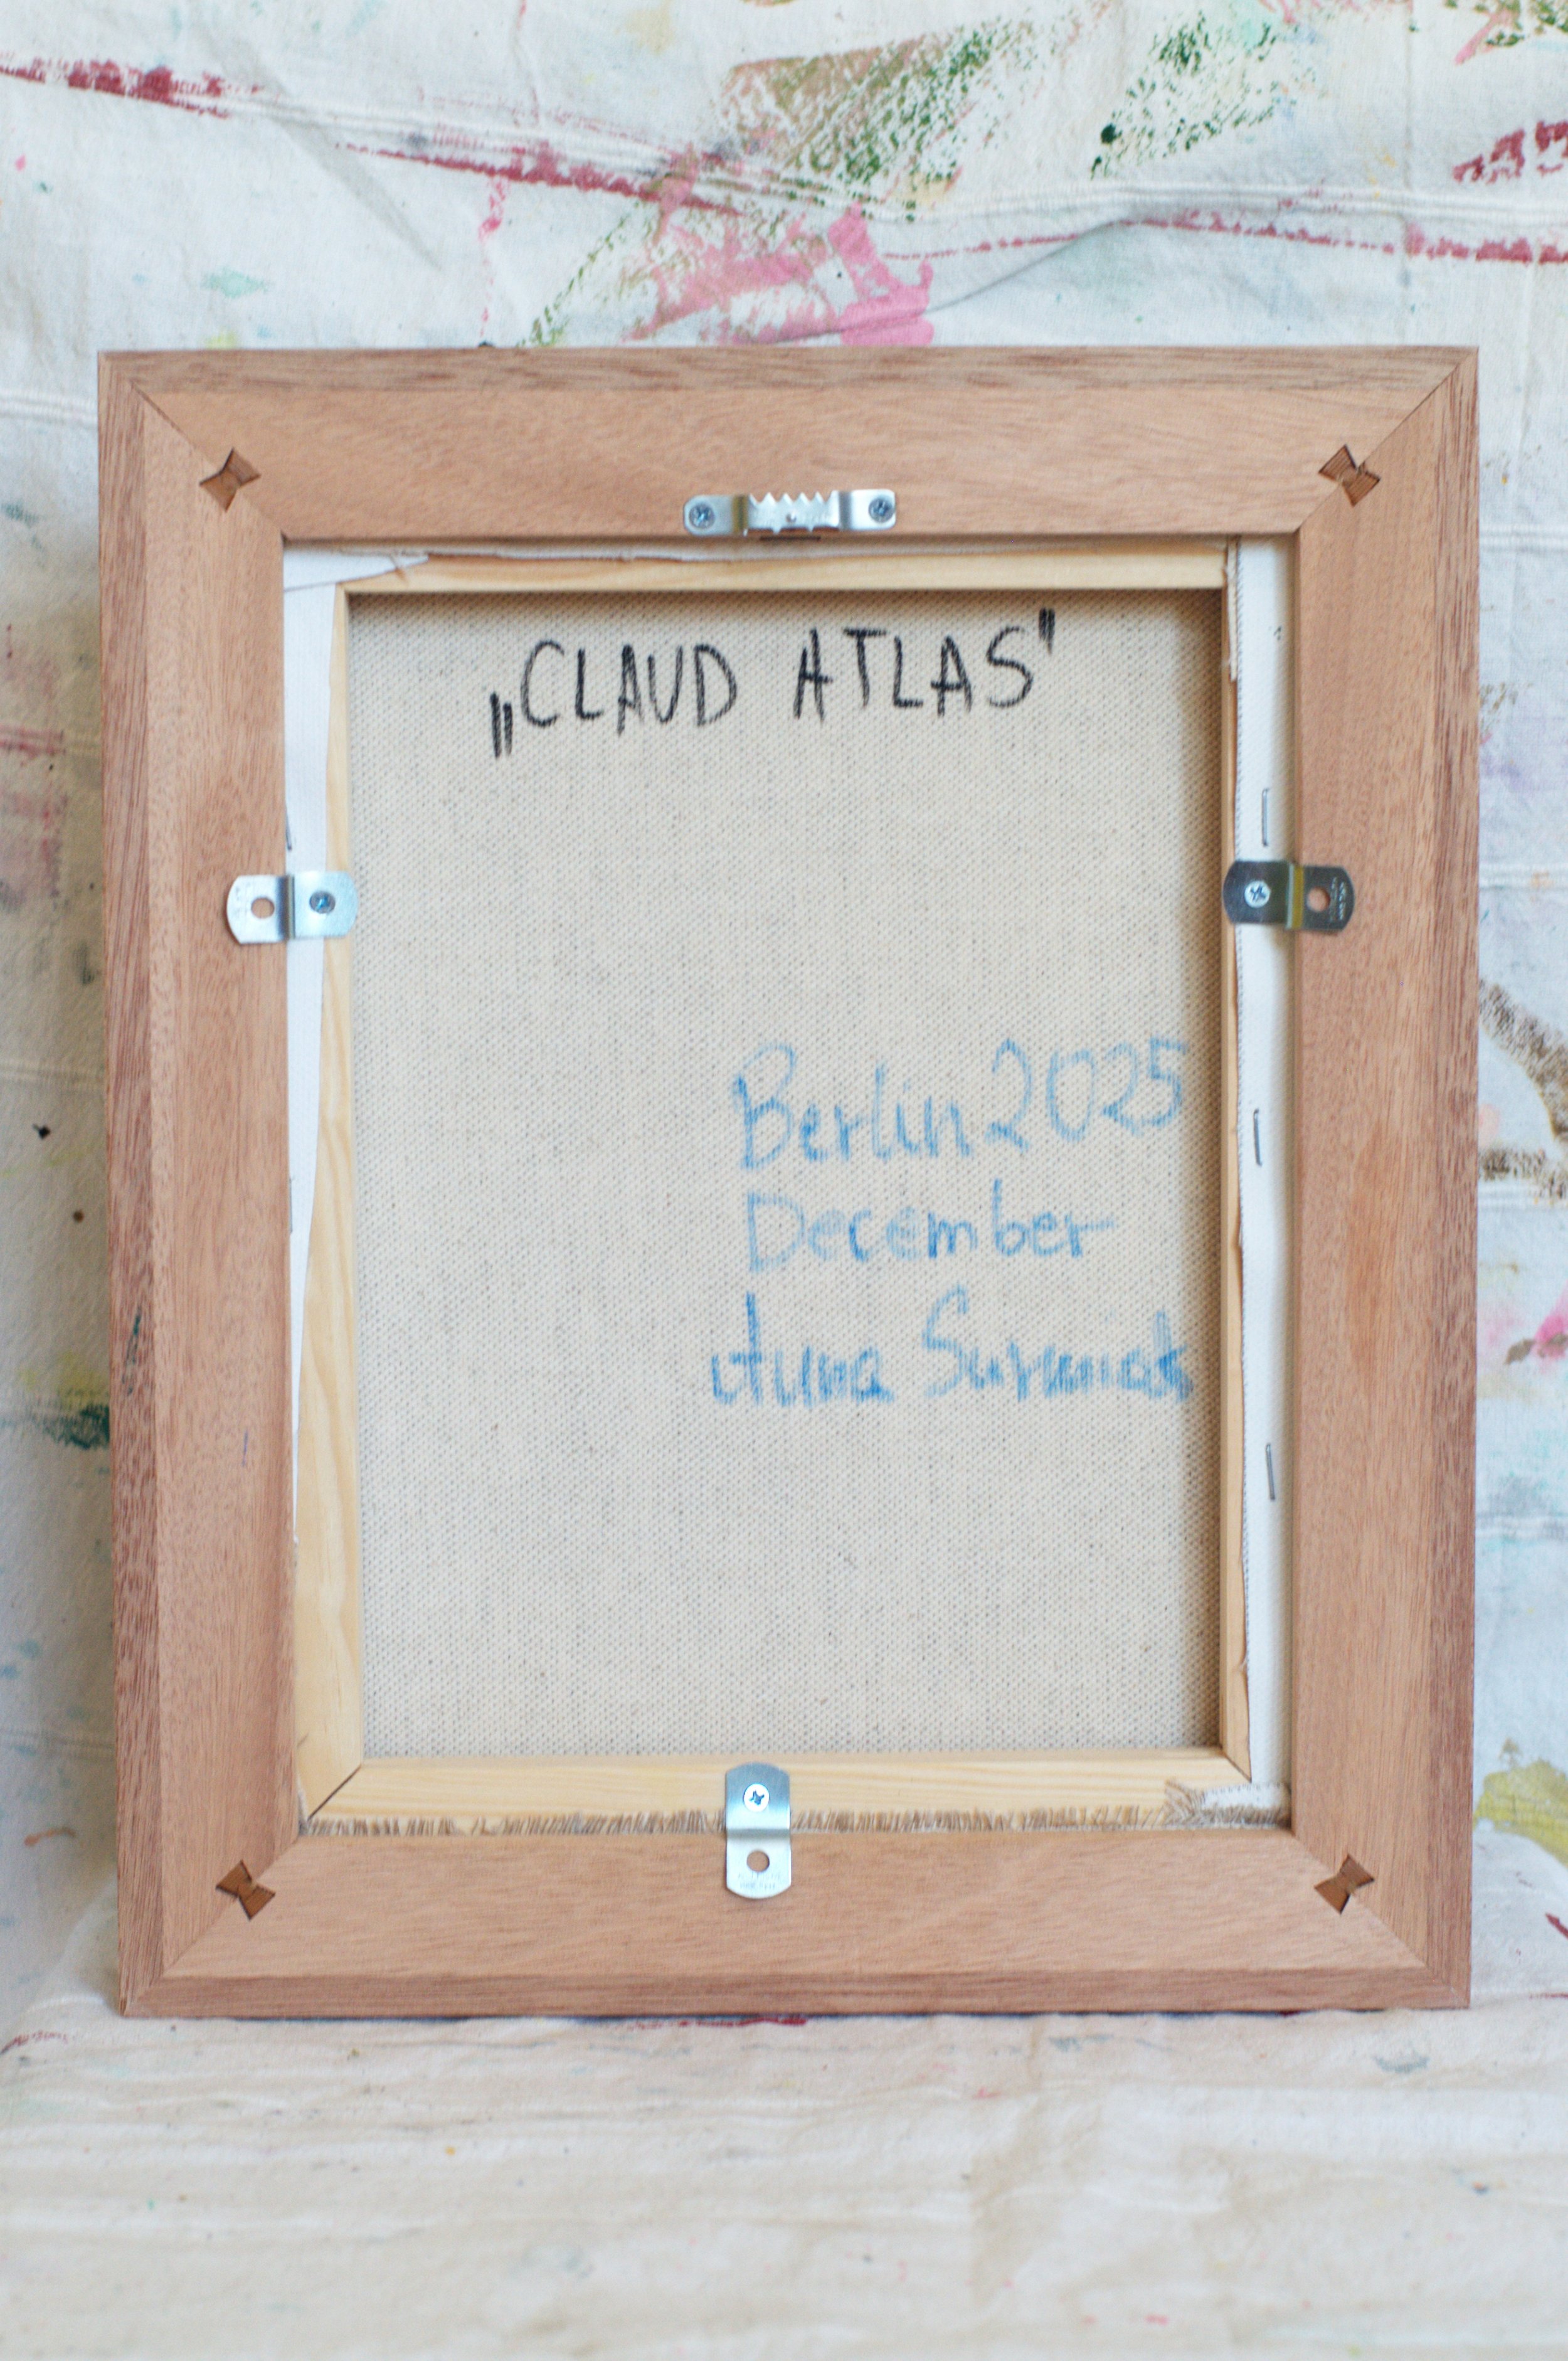 „CLAUD ATLAS"
Berlin 2025
December
Anna Surmiak